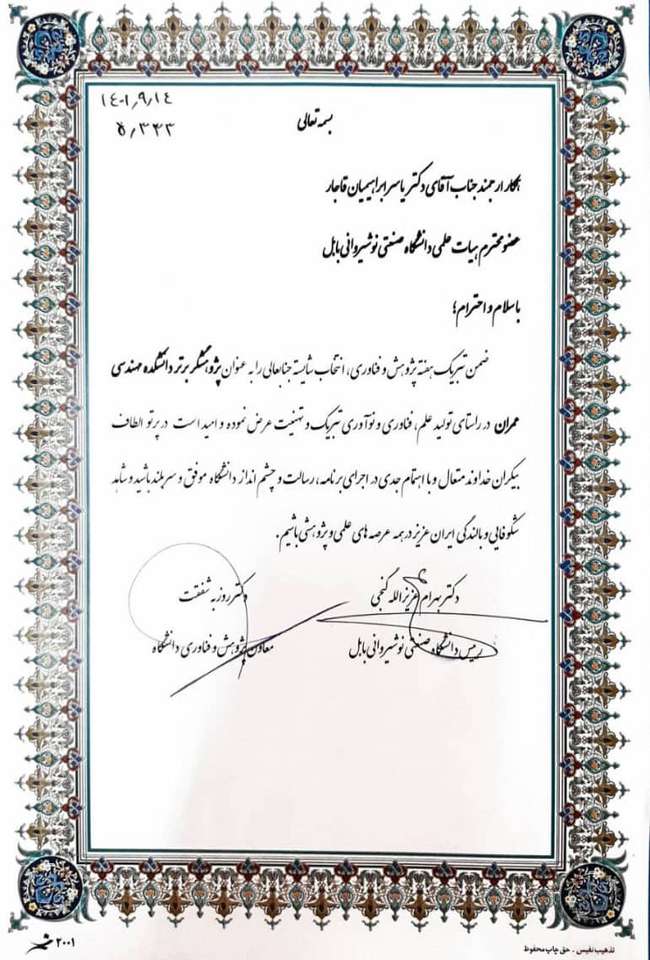 ۱۴۰۱٫۹٫۱۴
۵٫۳۴۳
بسمه تعالی
همکار ارجمند جناب آقای دکتر یاسر ابراهیمیان قاجار
عضو محترم هیات علمی دانشگاه صنعتی نوشیروانی بابل
با سلام و احترام؛
ضمن تبریک هفته پژوهش و فناوری، انتخاب شایسته جنابعالی را به عنوان پژوهشگر برتر دانشکده مهندسی
عمران در راستای تولید علم، فناوری و نوآوری تبریک و تهنیت عرض نموده و امید است در پرتو الطاف
بیکران خداوند متعال و با اهتمام جدی در اجرای برنامه، رسالت و چشم انداز دانشگاه موفق و سربلند باشید و شاهد
شکوفایی و بالندگی ایران عزیز در همه عرصه های علمی و پژوهشی باشیم.
دکتر بهرام عزیزالله گنجی
رییس دانشگاه صنعتی نوشیروانی بابل
دکتر روزبه شفقت
معاون پژوهش و فناوری دانشگاه
تذهیب نفیس - حق چاپ محفوظ
۲۰۰۱